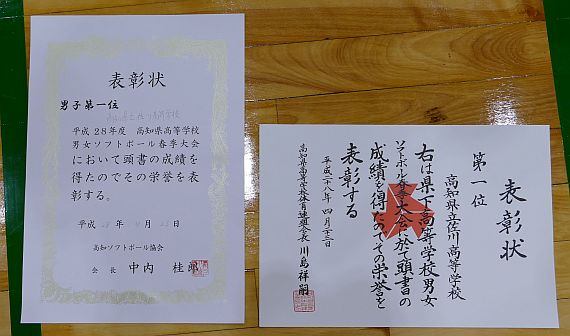 表彰状
男子第一位
高知県立佐川高等学校
平成28年度　高知県高等学校
男女ソフトボール春季大会
において頭書の成績を
得たのでその栄誉を表
彰する。
平成 28 年 4 月 23 日
高知ソフトボール協会
会長　中内　桂郎
表彰状
第一位
高知県立佐川高等学校
右は県下高等学校男女
ソフトボール春季大会に於て頭書の
成績を得たのでその栄誉を
表彰する
平成二十八年四月二十三日
高知県高等学校体育連盟会長　川島祥嗣